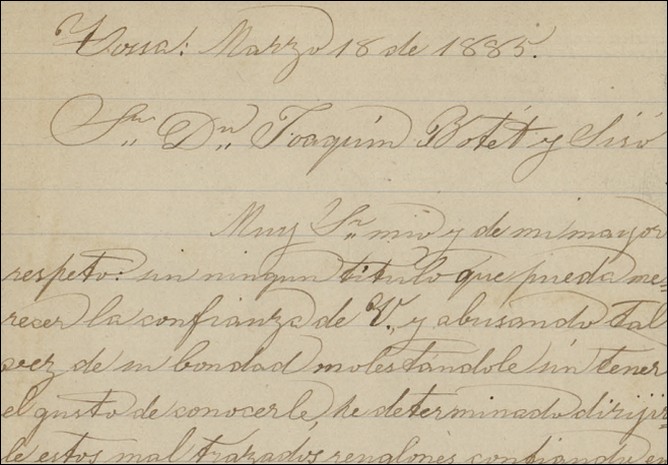 Tossa: Marzo 18 de 1885.
Sr. Dn. Joaquín Botét y Sisó
Muy Sr. mio y de mi mayor
respeto: sin ningun titulo que pueda me=
recer la confianza de V., y abusando tal
vez de su bondad molestándole sin tener
el gusto de conocerle, he determinado dirijir=
le estos mal trazados renglones confiando en